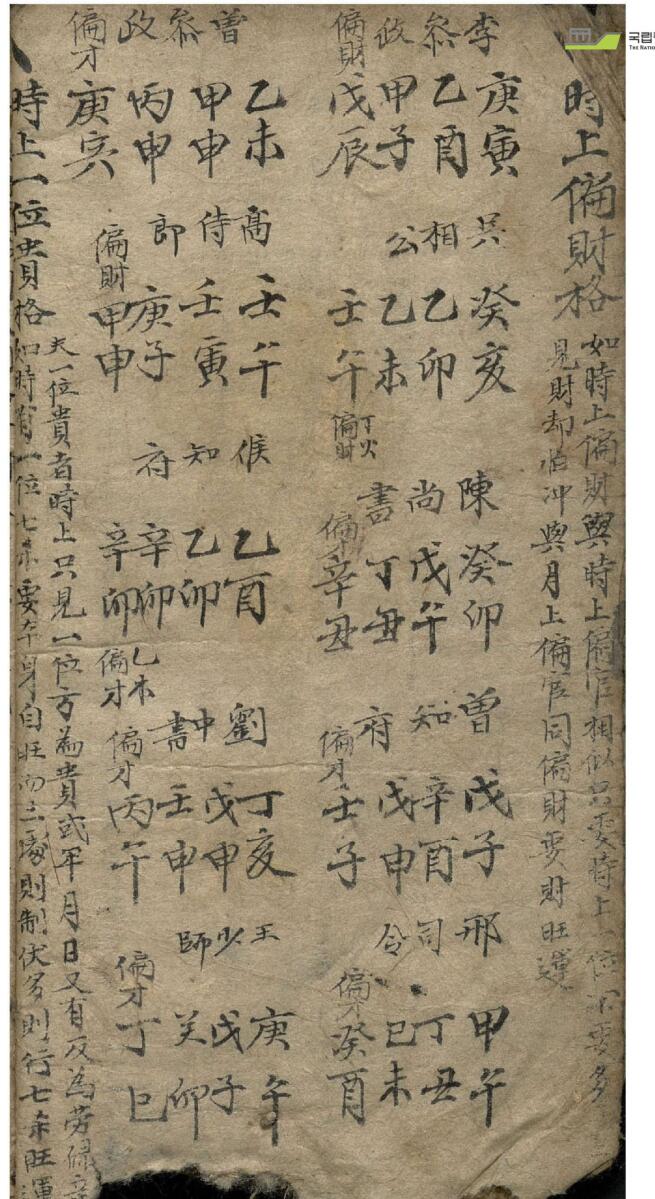 국립
時上偏財格
如時上偏財與時上偏官相似只要時上一位不要多
見財却怕冲與月上偏官同偏財要財旺運
李 庚寅 吳 癸亥 陳 癸卯 曾 戊子 邢 甲午
叅 乙酉 相 乙卯 尚 戊午 知 辛酉 司 丁丑
政 甲子 公 乙未 書 丁丑 府 戊申 令 己未
偏財 戊辰 壬午 丁火偏財 偏才 辛丑 偏才 壬子 偏才 癸酉
曾 乙未 高 壬午 侯 乙酉 劉 丁亥 王 庚午
叅 甲申 侍 壬寅 知 乙卯 中 戊申 少 戊子
政 丙申 郎 庚子 府 辛卯 書 壬申 師 癸卯
偏才 庚寅 偏財 甲申 辛卯 乙木偏才 偏才 丙午 偏才 丁巳
時上一位貴格
夫一位貴者時上只見一位方為貴或年月日又有反為劳碌
如時有一位七杀要本身自旺而三處則制伏多則行七杀旺運